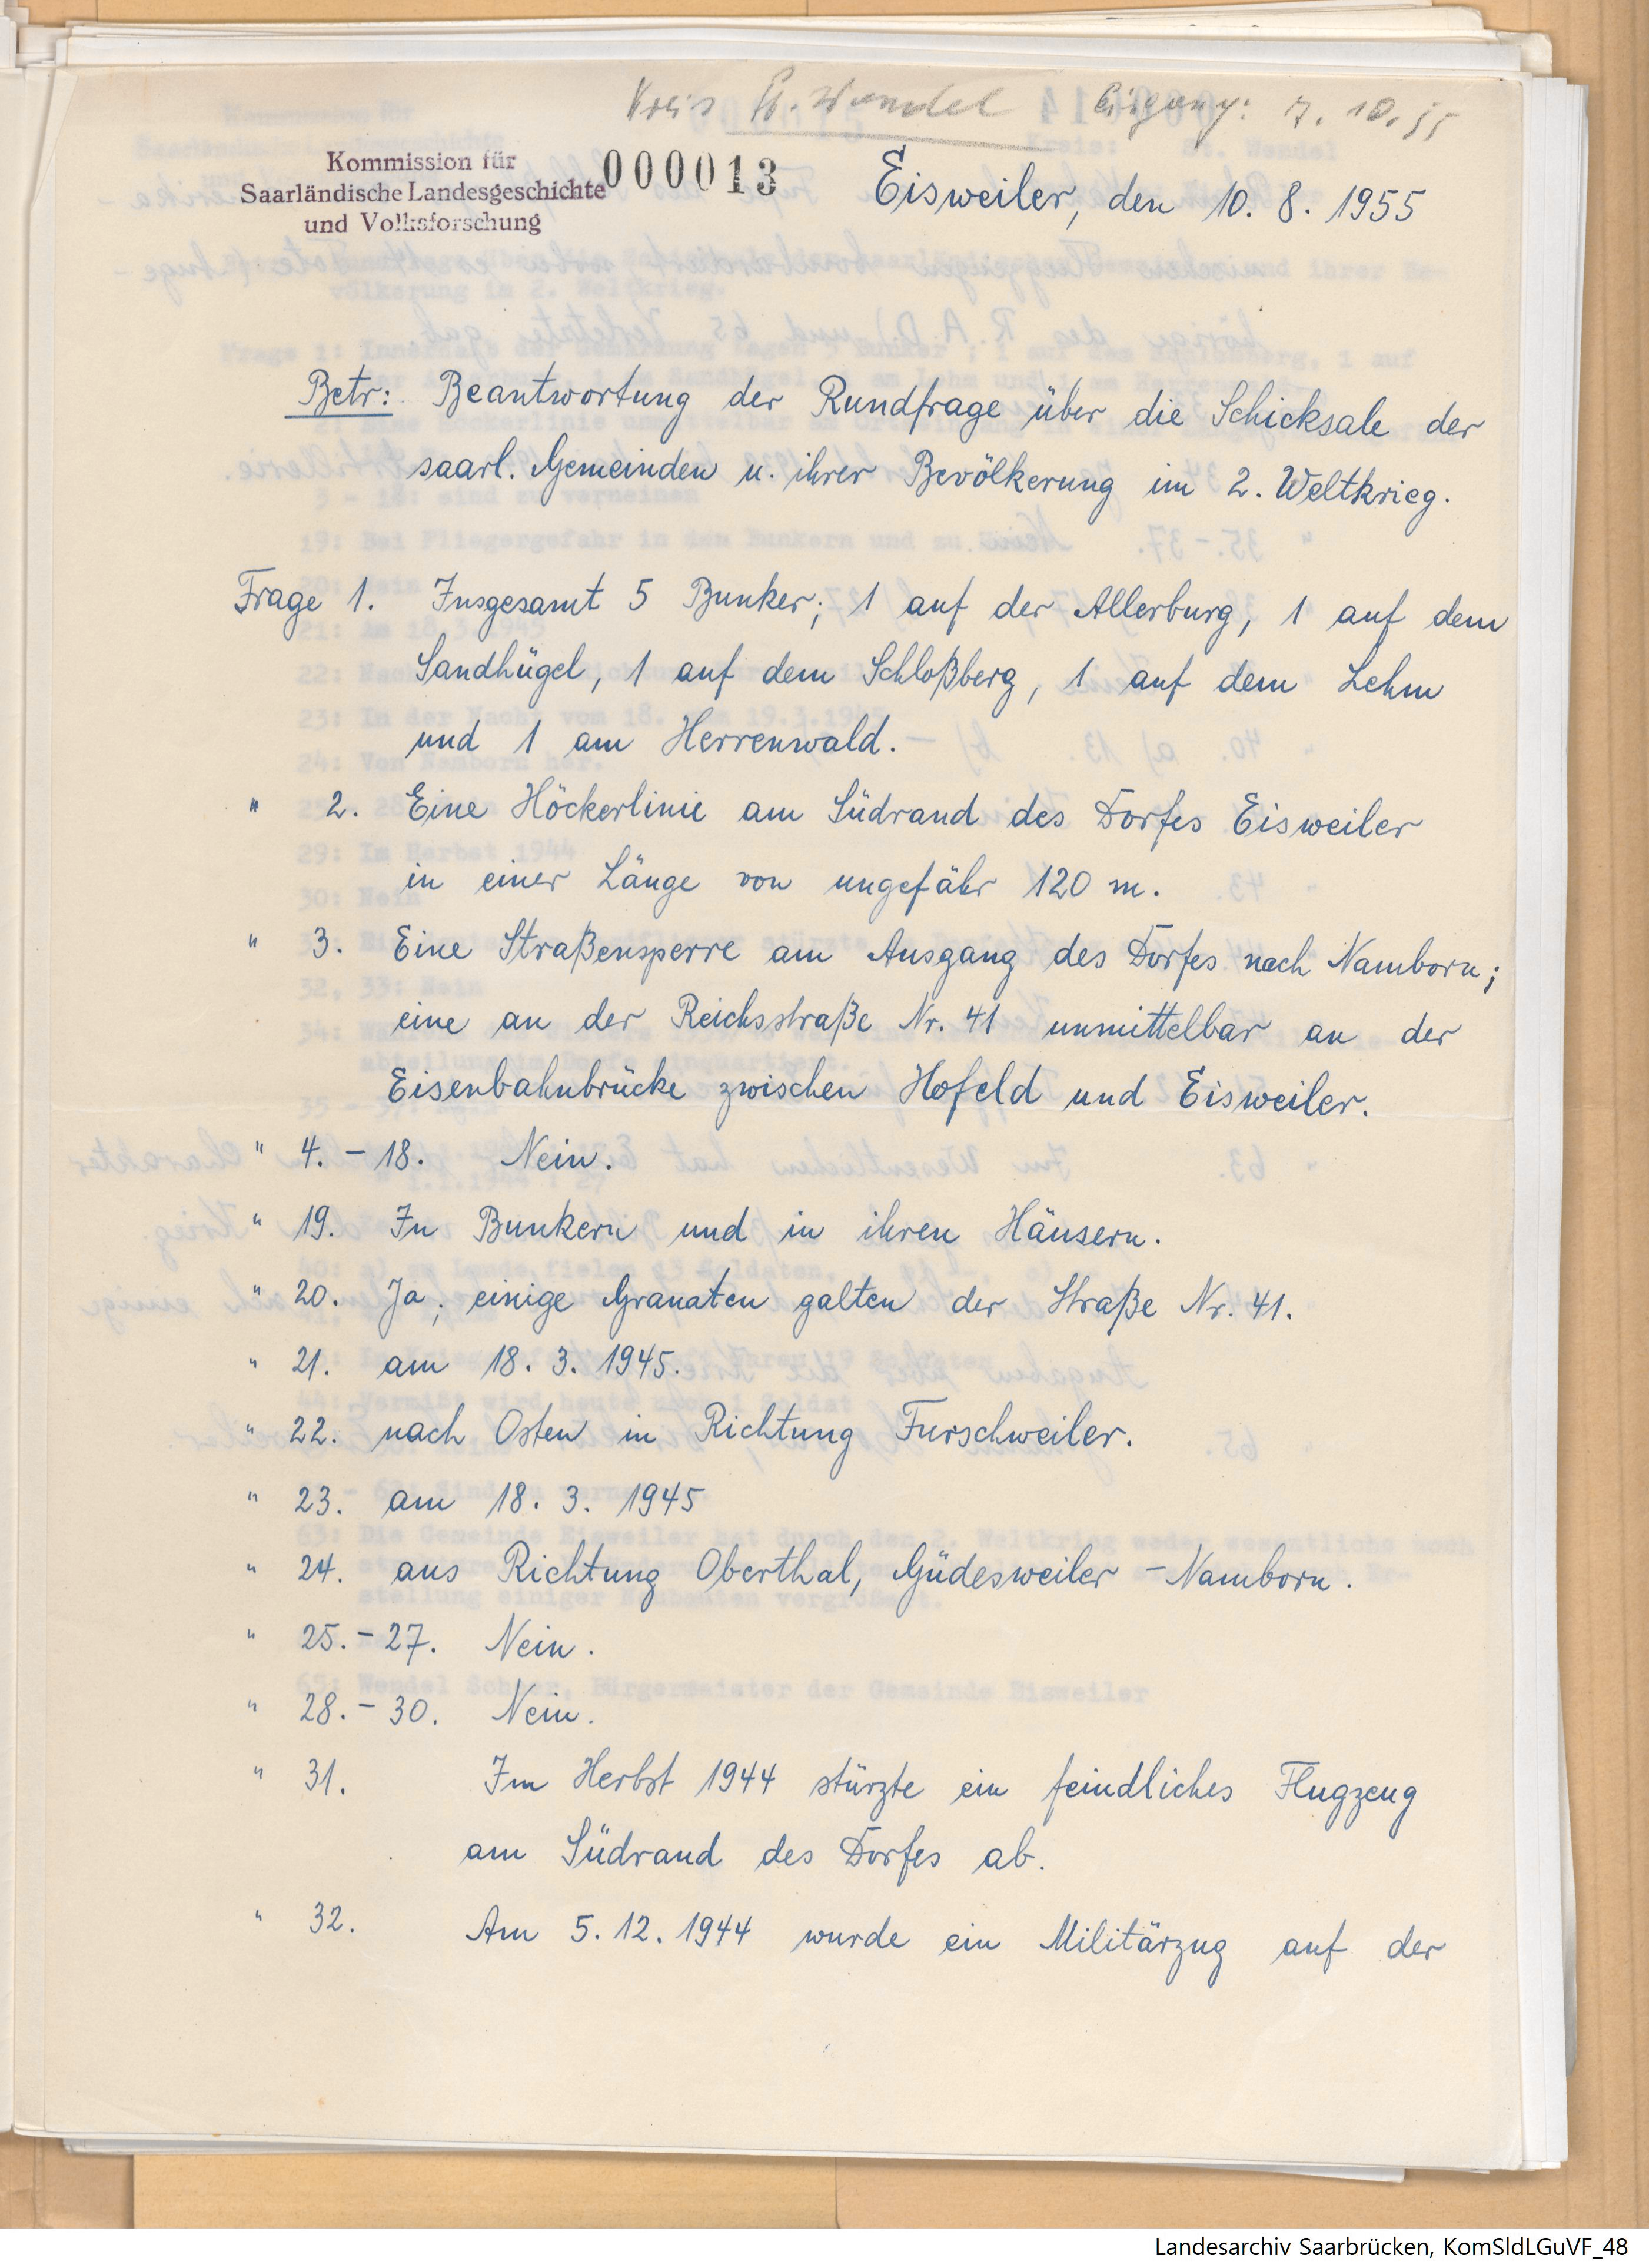 Kreis St. Wendel Eingang: 7. 10. 55
Kommission für
Saarländische Landesgeschichte
und Volksforschung
000013
Eisweiler, den 10. 8. 1955
Betr: Beantwortung der Rundfrage über die Schicksale der
saarl. Gemeinden u. ihrer Bevölkerung im 2. Weltkrieg.
Frage 1. Insgesamt 5 Bunker; 1 auf der Allerburg, 1 auf dem
Sandhügel, 1 auf dem Schloßberg, 1 auf dem Lehm
und 1 am Herrenwald.
" 2. Eine Höckerlinie am Südrand des Dorfes Eisweiler
in einer Länge von ungefähr 120 m.
" 3. Eine Straßensperre am Ausgang des Dorfes nach Namborn;
eine an der Reichsstraße Nr. 41 unmittelbar an der
Eisenbahnbrücke zwischen Hofeld und Eisweiler.
" 4. – 18. Nein.
" 19. In Bunkern und in ihren Häusern.
" 20. Ja; einige Granaten galten der Straße Nr. 41.
" 21. am 18. 3. 1945.
" 22. nach Osten in Richtung Furschweiler.
" 23. am 18. 3. 1945
" 24. aus Richtung Oberthal, Güdesweiler – Namborn.
" 25. – 27. Nein.
" 28. – 30. Nein.
" 31. Im Herbst 1944 stürzte ein feindliches Flugzeug
am Südrand des Dorfes ab.
" 32. Am 5. 12. 1944 wurde ein Militärzug auf der
Landesarchiv Saarbrücken, KomSldLGuVF_48